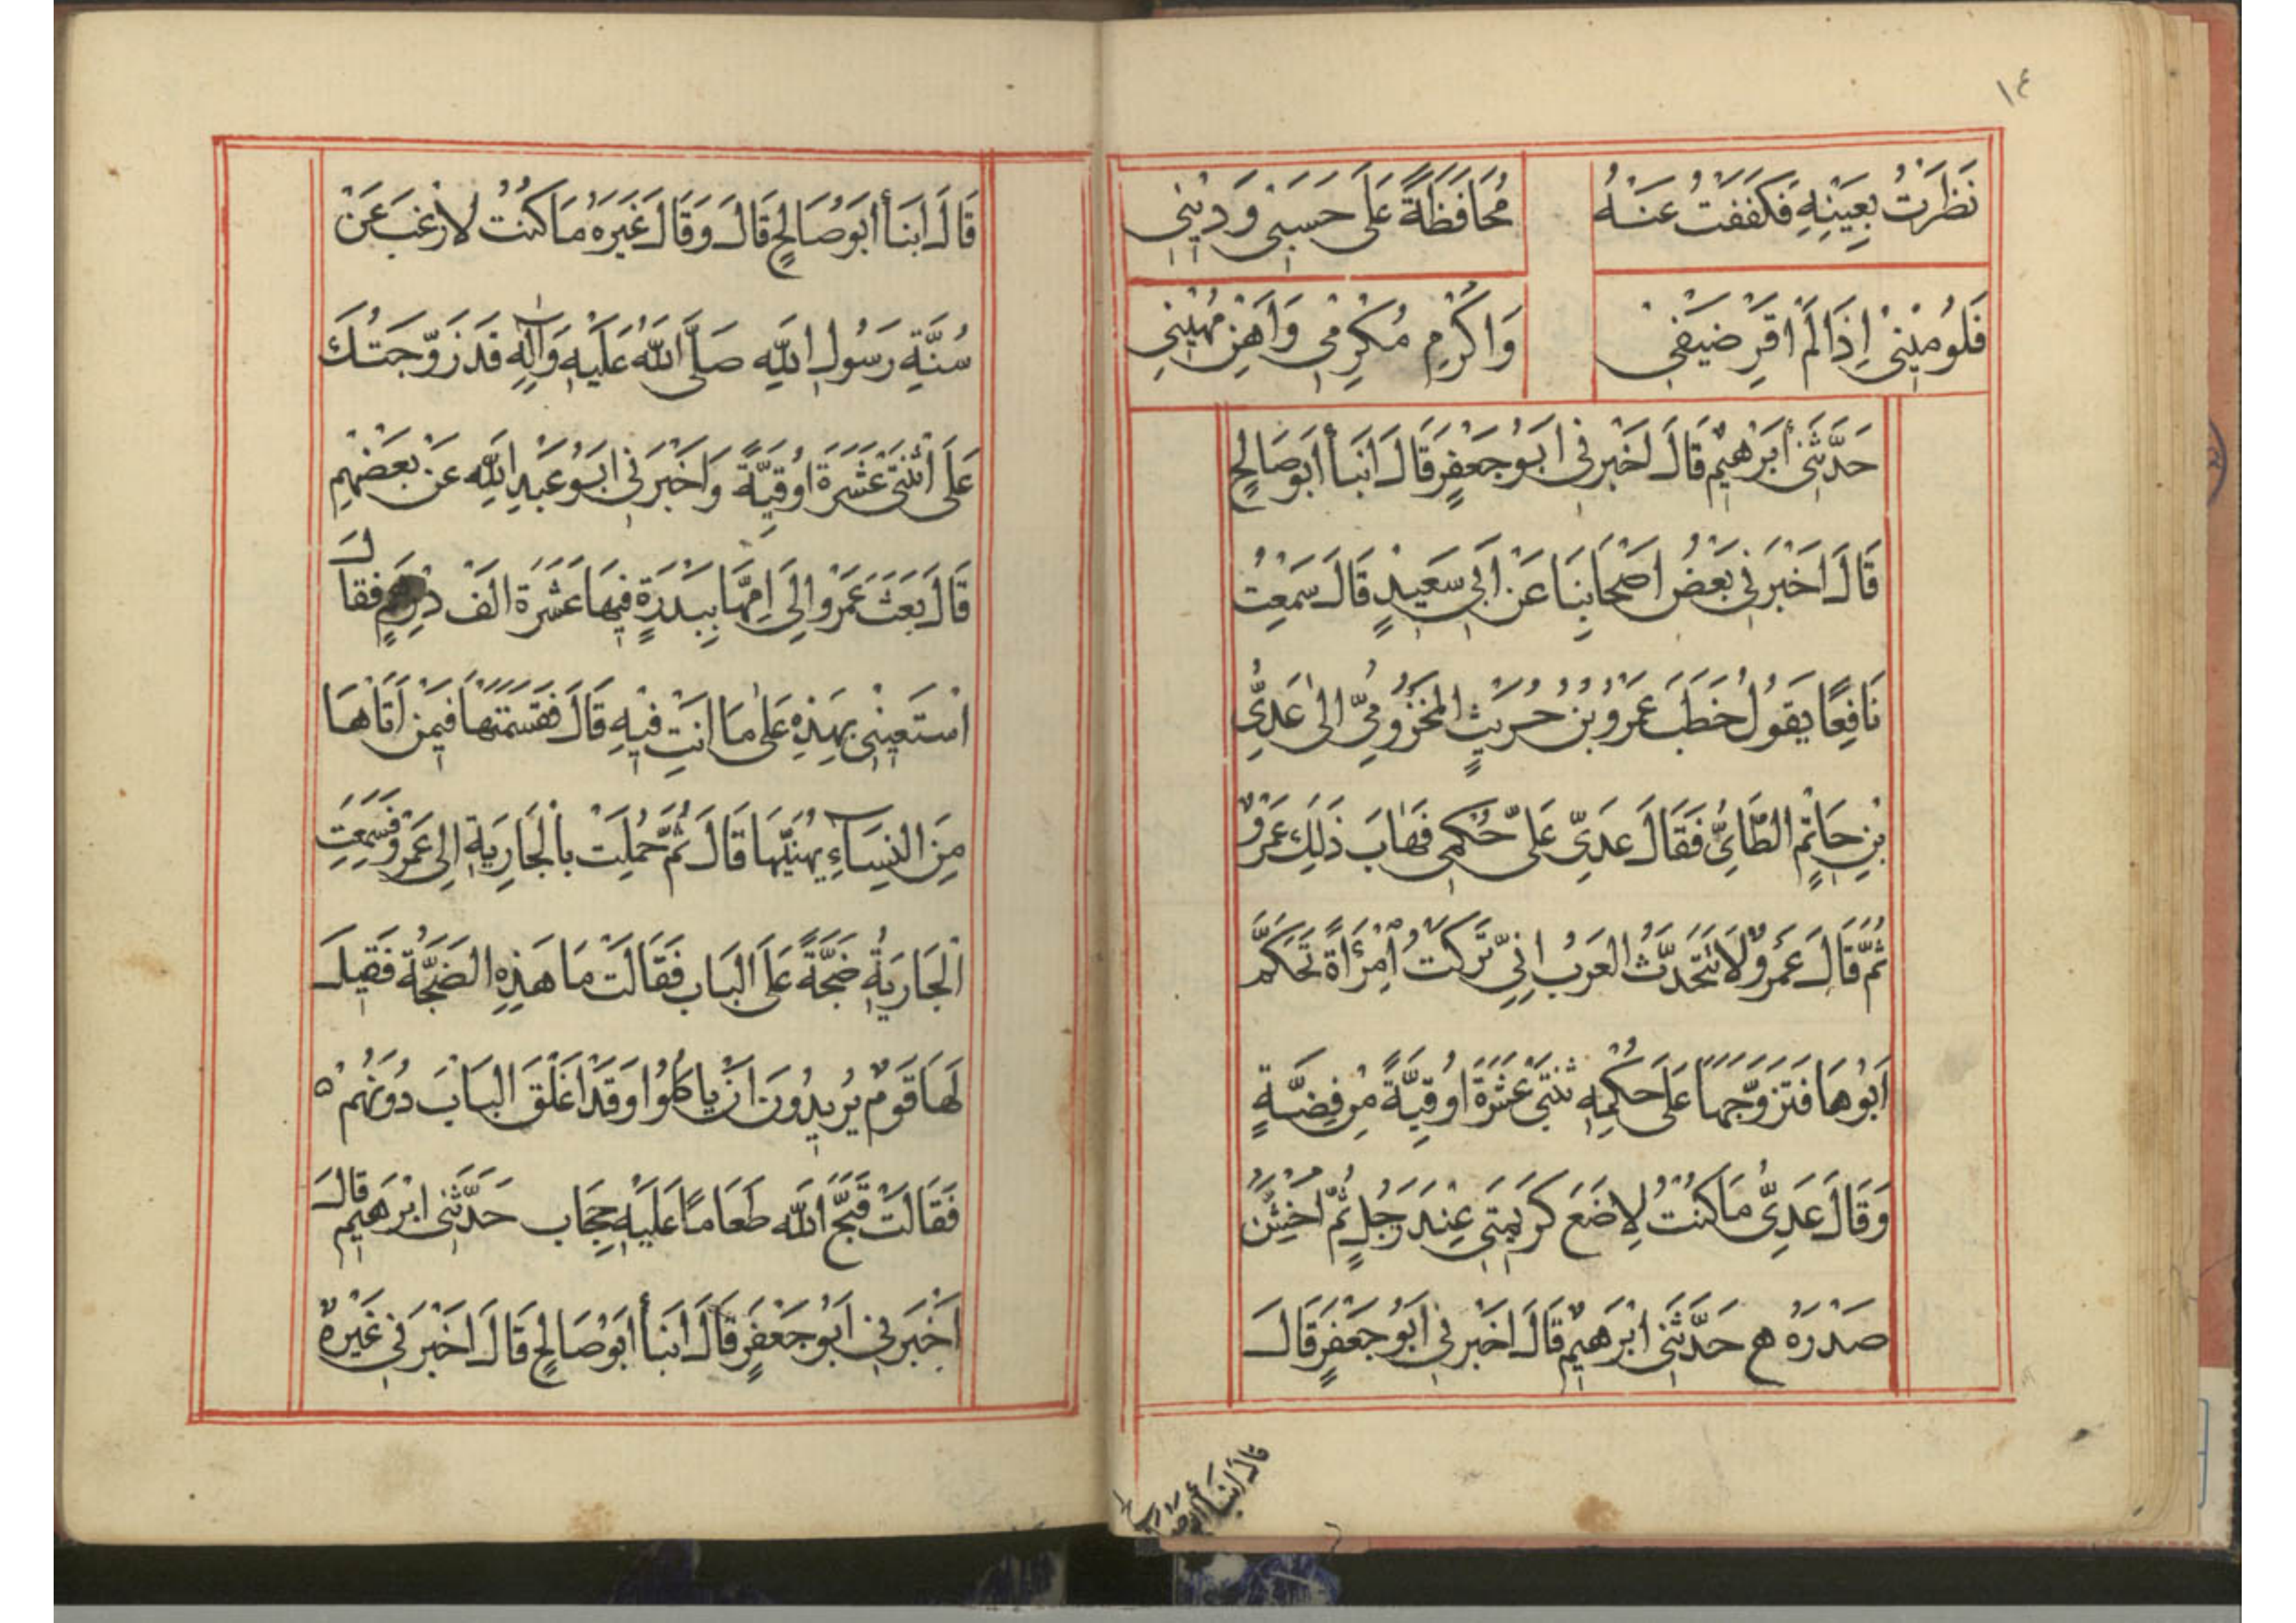 ١٤
نَظَرَتْ بِعَيْنِهِ فَكَفَفْتُ عَنْهُ مُحَافَظَةً عَلَى حَسَبِي وَدِيْنِي
فَلُوْمِيْنِي اِذَا لَمْ اَقْرِ ضَيْفِي وَاُكْرِمْ مُكْرِمِي وَاُهِنْ مُهِيْنِي
حَدَّثَنِي أبْرَهِيْمُ قَالَ اَخْبَرَنِي اَبُوْ جَعْفَرٍ قَالَ انبأ أبو صَالِحٍ
قَالَ اَخْبَرَنِي بَعْضُ اَصْحَابِنَا عَنْ اَبِي سَعِيْدٍ قَالَ سَمِعْتُ
نَافِعًا يَقُولُ خَطَبَ عَمْرُو بْنُ حُرَيْثٍ المَخْزُوْمِيُّ الىٰ عَدِيِّ
بْنِ حَاتِمٍ الطَّائِيِّ فَقَالَ عَدِيّ عَلَى حُكْمِي فَهَابَ ذَلِكَ عَمْرٌو
ثُمَّ قَالَ عَمْرٌو لَا تَتَحَدَّثُ العَرَبُ اِنِّي تَرَكْتُ اِمْرَأَةً تَحَكَّمَ
اَبُوْهَا فَتَزَوَّجَهَا عَلَى حُكْمِهِ ثنْتَيْ عَشْرَةَ اُوقِيَّةً مِنْ فِضَّةٍ
وَقَالَ عَدِيٌّ مَا كُنْتُ لِاَضَعَ كَرِيْمَتِي عِنْدَ رَجُلٍ ثُمَّ اُخَشِّنُ
صَدْرَهُ هـ حَدَّثَنِي ابْرَهِيْمُ قَالَ اَخْبَرَنِي اَبُوْ جَعْفَرٍ قَالَ
قال انبأ
قَالَ انبَأ أبُوْ صَالِحٍ قَالَ وَقَالَ غَيْرُهُ مَا كُنْتُ لاَرْغَبَ عَنْ
سُنَّةِ رَسُولِ اللهِ صَلَّى اللهُ عَلَيْهِ وَآلِهِ قَدْ زَوَّجْتُكَ
عَلَى اثْنَتَيْ عَشْرَةَ اُوْقِيَّةً وَاَخْبَرَنِي اَبُوْ عَبْدِ اللهِ عَنْ بَعْضِهِمْ
قَالَ بَعَثَ عَمْرٌو اِلَى اُمِّهَا بِبَدْرَةٍ فِيْهَا عَشْرَةُ الَفْ دِرْهَمٍ فقال
اسْتَعِيْنِي بِهَذِهِ عَلىٰ مَا انْتِ فِيْهِ قَالَ فَقَسَمَتْهَا فِيْمَنْ اَتَاهَا
مِنَ النِسَآءِ يُهَنِّيهَا قَالَ ثُمَّ حُمِلَتْ بالْجَارِيَةِ اِلى عَمْرٍو فَسَمِعَتِ
الْجَارِيَةُ ضَجَّةً عَلَى البَابِ فَقَالَتْ مَا هَذِهِ الضَّجَّةُ فَقِيْلَ
لَهَا قَوْمٌ يُرِيدُونَ اَنْ يَاكُلُوْا وَقَدْ اَغْلَقَ البَابَ دُوْنَهُمْ ه
فَقَالَتْ قَبَّحَ اللّٰه طَعَامًا عَلَيْهِ حِجَاب حَدَّثَنِي ابْرَهِيْم قَالَ
اَخْبَرَنِي اَبُوْ جَعْفَرٍ قَالَ انبَأ أبُوْ صَالِحٍ قَالَ اَخْبَرَنِي غَيْرُهُ